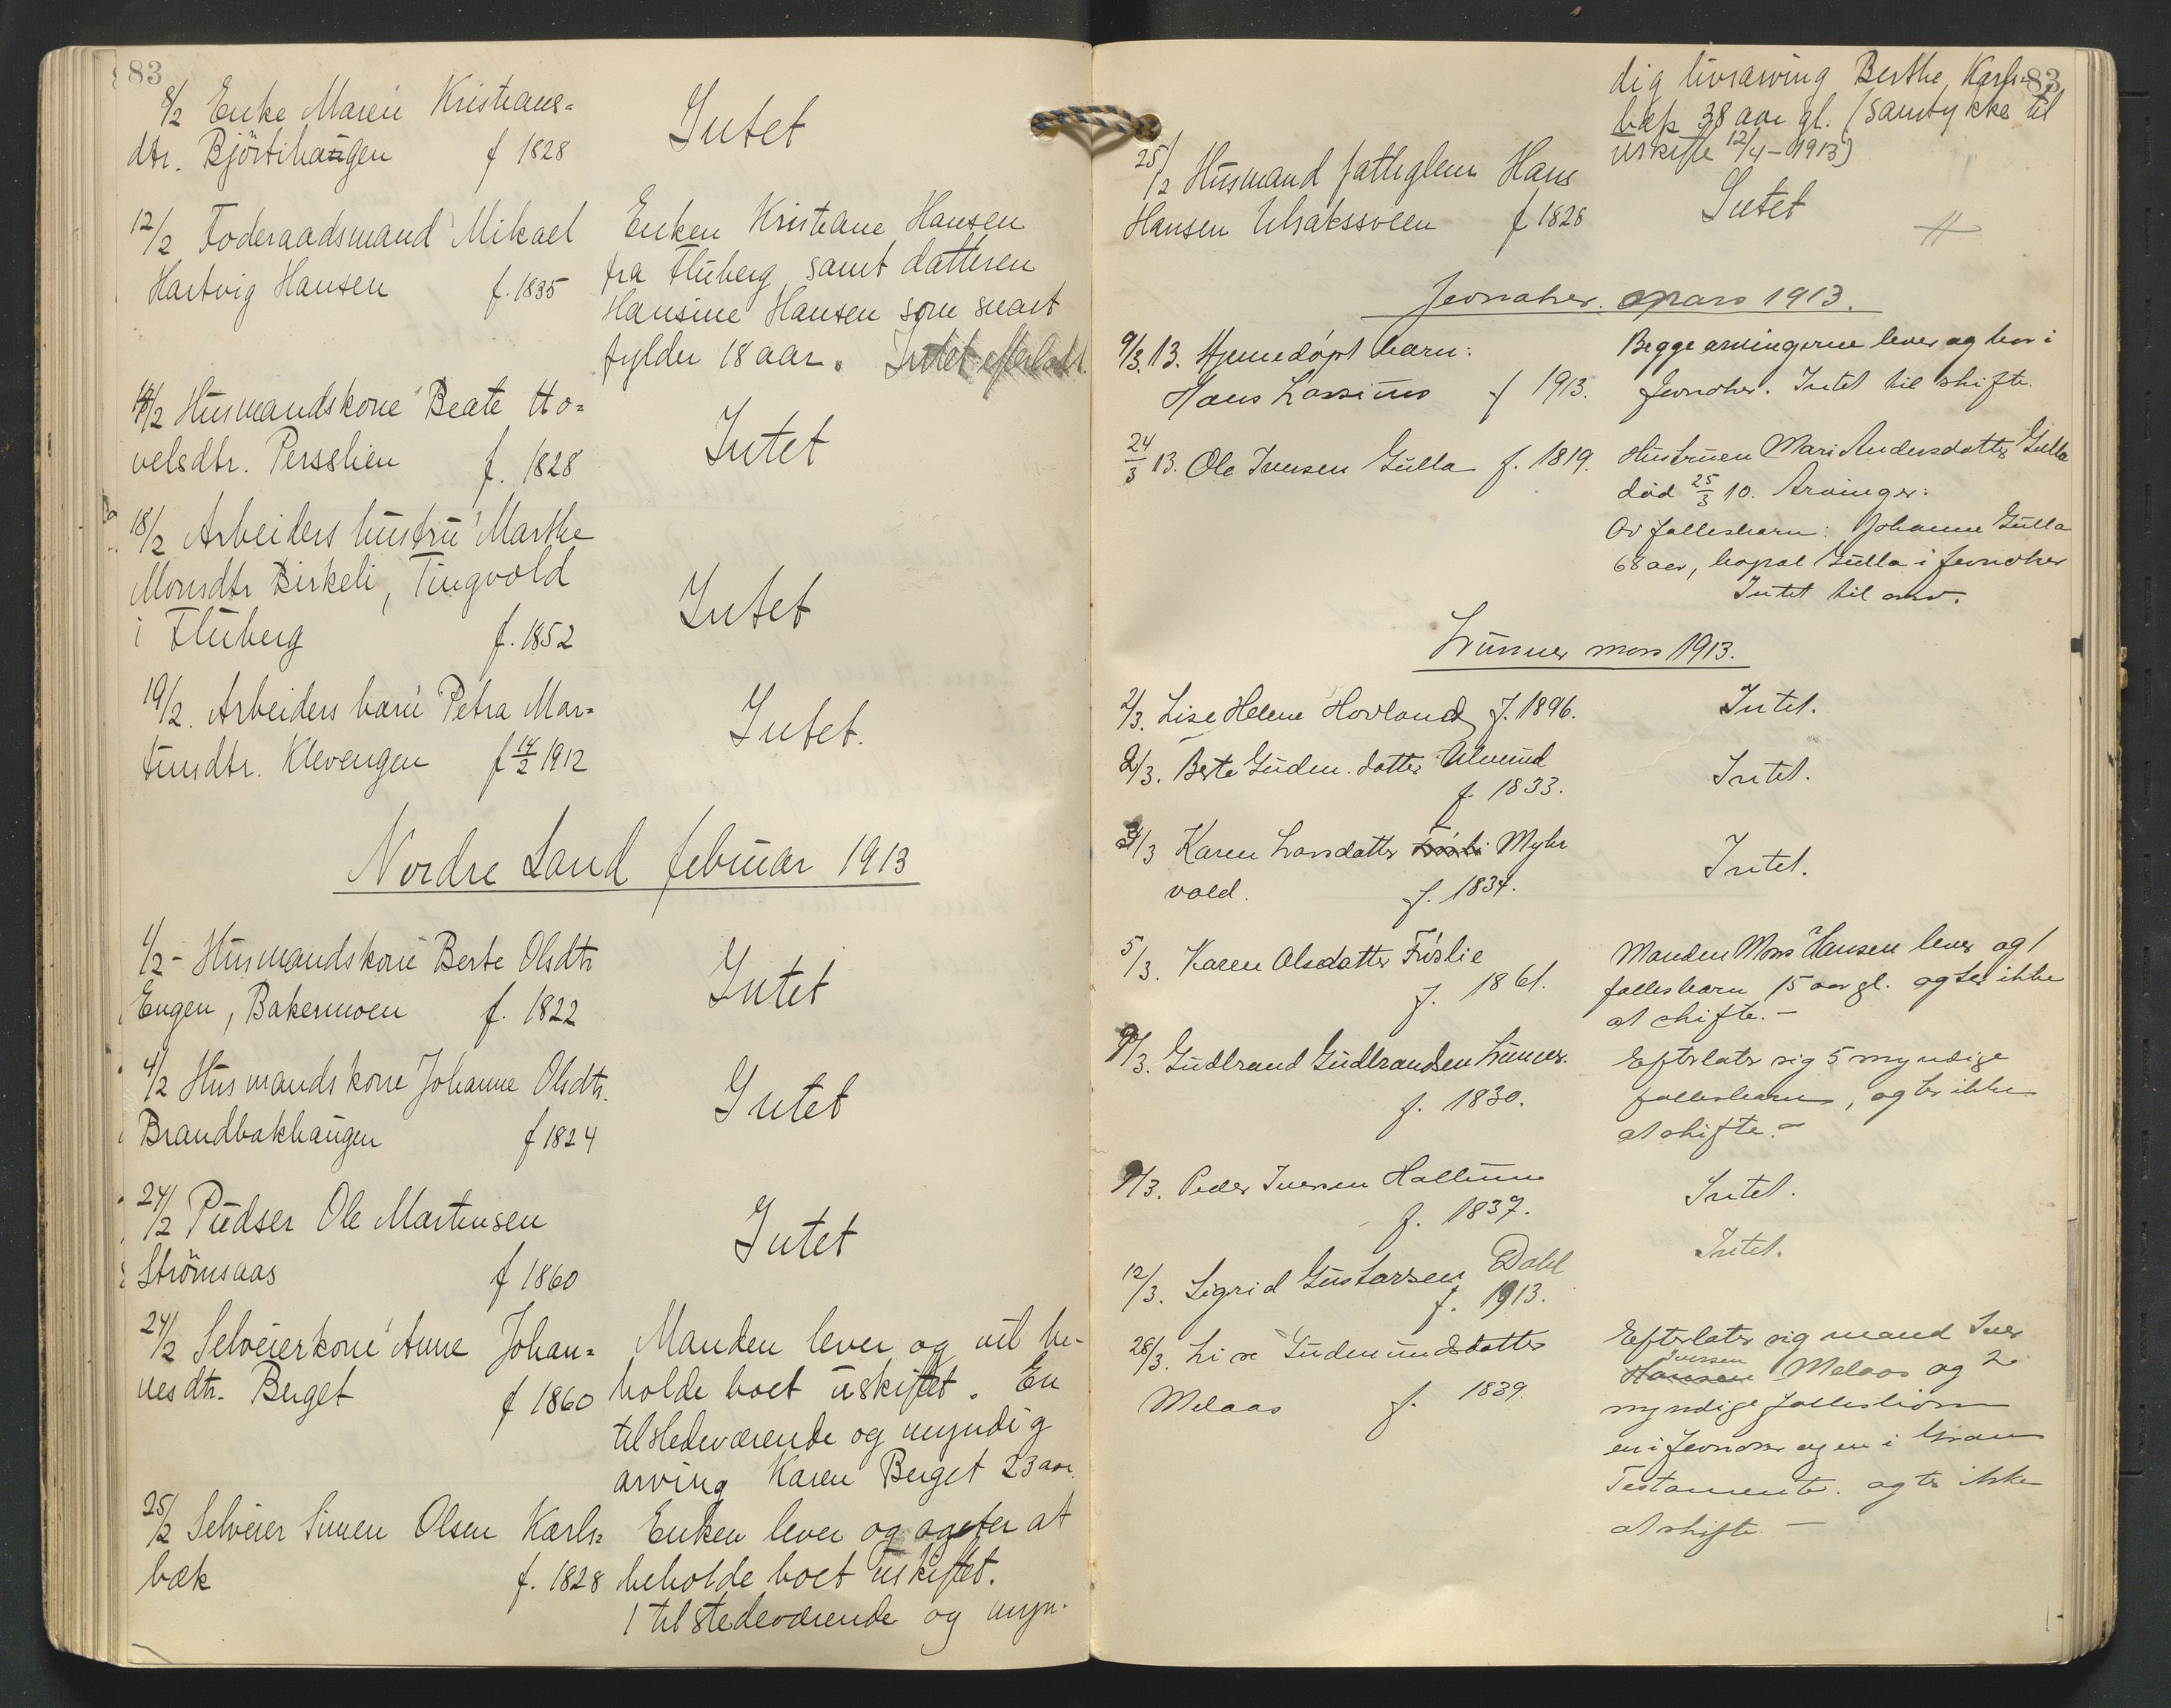 83
8/2 Enke Maren Kristians=
dtr. Björtihaugen f 1828
Intet
12/2 Foderaadsmand Mikael
Hartvig Hansen f. 1835
Enken Kristiane Hansen
fra Fluberg samt datteren
Hansine Hansen som snart
fylder 18 aar. Intet efterladt.
14/2 Husmandskone Beate Ho=
velsdtr. Persslien f. 1828
Intet
18/2 Arbeiders hustru Marthe
Monsdtr Birkeli, Tingvold
i Fluberg f. 1852
Intet
19/2. Arbeiders barn Petra Mar=
tinsdtr. Klevengen f 14/2 1912
Intet.
Nordre Land februar 1913
1/2 - Husmandskone Berte Olsdtr
Engen, Bakermoen f. 1822
Intet
4/2 Husmandskone Johanne Olsdtr.
Brandbakhaugen f 1824
Intet
24/2 Pudser Ole Martinsen
Strömsaas f 1860
Intet
24/2 Selveierkone Anne Johan=
nesdtr. Berget f 1860
Manden lever og vil be-
holde boet uskiftet. En
tilstedeværende og myndig
arving Karen Berget 23 aar.
25/2 Selveier Simen Olsen Karls=
bæk f. 1828
Enken lever og agter at
beholde boet uskiftet.
1 tilstedeværende og myn-
83
dig livsarving Berthe Karls-
bæk 38 aar gl. (Samtykke til
uskifte 12/4 - 1913)
25/2 Husmand fattiglem Hans
Hansen f 1828
Intet
Jevnaker. mars 1913.
9/3. 13. Hjemmedøpt barn:
Hans Lassinus f 1913.
Begge arvingerne lever og bor i
Jevnaker. Intet til skifte.
24/3 13. Ole Iversen Gulla f. 1819.
Hustruen Mari Andersdatter Gulla
død 25/3 10. Arvinger:
Av fællesbarn: Johanne Gulla
68 aar, bopæl Gulla i Jevnaker
Intet til arv.
Lunner mars 1913.
2/3. Lise Helene Hovland f. 1896.
Intet.
2/3. Berte Gudm. datter Almind
f. 1833.
Intet.
3/3 Karen Larsdatter Myhr
vold. f. 1834.
Intet.
5/3. Karen Olsdatter Føslie
f. 1861.
Manden Mons Hansen lever og 1
fællesbarn 15 aar gl. agter ikke
at skifte. -
9/3. Gudbrand Gudbrandsen Lunner.
f. 1830.
Efterlater sig 5 myndige
fællesbarn, agter ikke
at skifte. -
9/3. Peder Iversen Hallum
f. 1837.
Intet.
12/3. Sigrid Gustavsen Dahl
f. 1913.
Intet.
28/3. Lise Gudmundsdatter
Melaas f. 1839.
Efterlater sig mand Iver
Iversen
Hansen Melaas og 2
myndige fællesbørn
en i Jevnaker og en i Gran
Testamente. agter ikke
at skifte. -